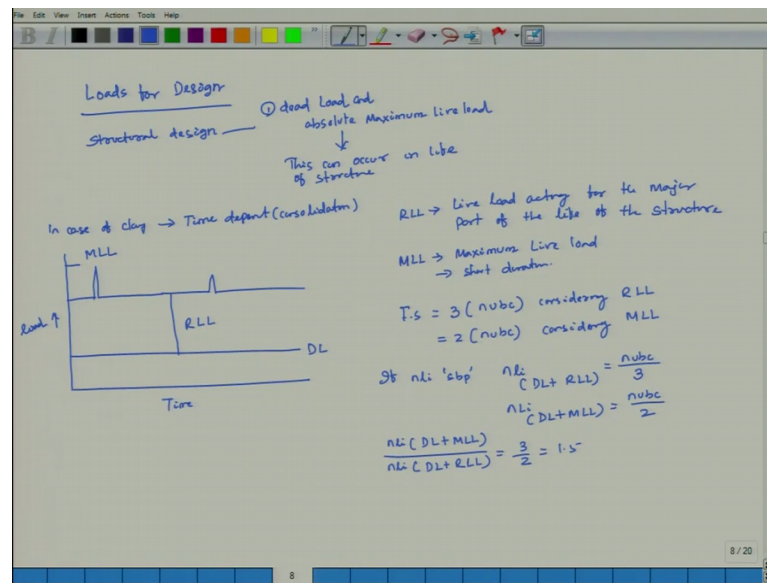 File Edit View Insert Actions Tools Help
B I
Loads for Design
Structural design
① dead Load and
absolute Maximum Live load
This can occur in life
of structure
In case of clay → Time depent (consolidation)
MLL
Load ↑
RLL
DL
Time
RLL → Live Load acting for the Major
part of the life of the structure
MLL → Maximum Live load
→ short duration.
F.s = 3 (nubc) considering RLL
= 2 (nubc) considering MLL
If nli 'sbp' nli (DL + RLL) = nubc / 3
nli (DL+MLL) = nubc / 2
nli (DL+MLL) / nli (DL+RLL) = 3/2 = 1.5
8 / 20
8